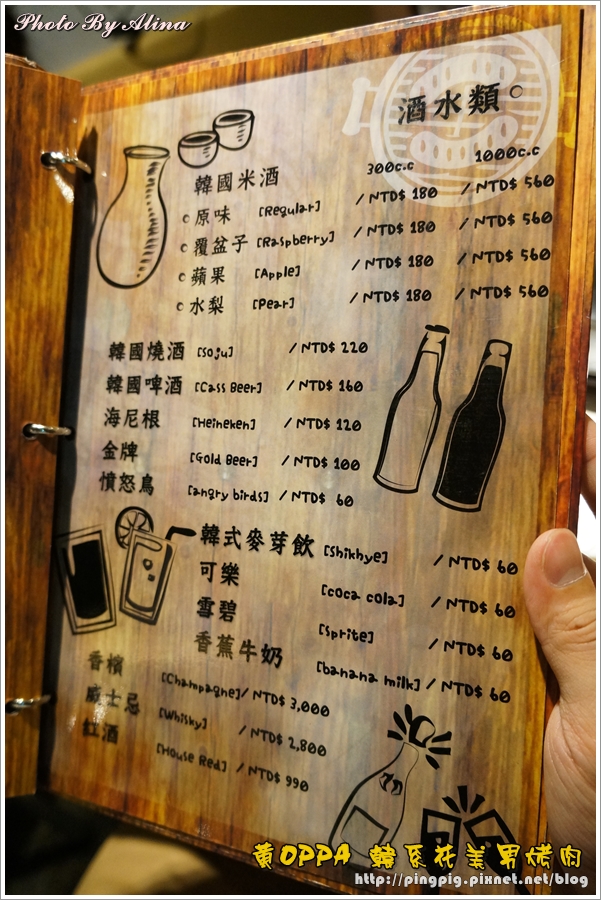 Photo By Alina
酒水類
300c.c 1000c.c
韓國米酒
原味 [Regular] / NTD$ 180 / NTD$ 560
覆盆子 [Raspberry] / NTD$ 180 / NTD$ 560
蘋果 [Apple] / NTD$ 180 / NTD$ 560
水梨 [Pear] / NTD$ 180 / NTD$ 560
韓國燒酒 [Soju] / NTD$ 220
韓國啤酒 [Cass Beer] / NTD$ 160
海尼根 [Heineken] / NTD$ 120
金牌 [Gold Beer] / NTD$ 100
憤怒鳥 [angry birds] / NTD$ 60
韓式麥芽飲 [Shikhye] / NTD$ 60
可樂 [coca cola] / NTD$ 60
雪碧 [Sprite] / NTD$ 60
香蕉牛奶 [banana milk] / NTD$ 60
香檳 [Champagne] / NTD$ 3,000
威士忌 [Whisky] / NTD$ 2,800
紅酒 [House Red] / NTD$ 990
黃OPPA 韓系花美男烤肉
http://pingpig.pixnet.net/blog